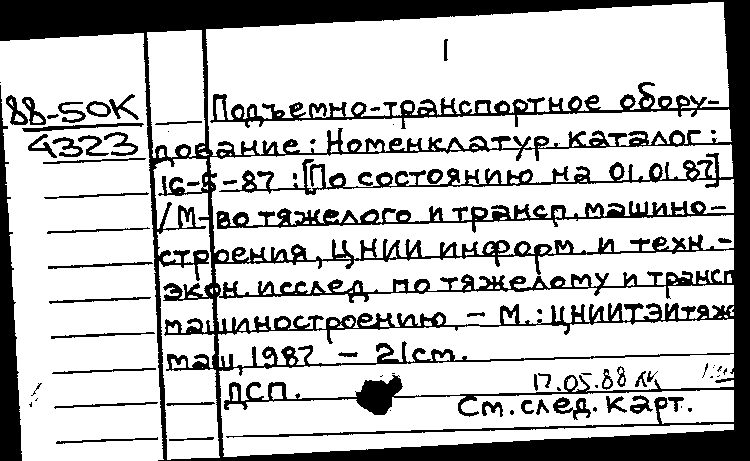 1
88-50К
4323
Подъемно-транспортное обору-
дование: Номенклатур. каталог:
16-5-87: [По состоянию на 01.01.87]
/М-во тяжелого и трансп. машино-
строения, ЦНИИ информ. и техн.-
экон. исслед. по тяжелому и трансп
машиностроению. - М.: ЦНИИТЭИтяж
маш, 1987. - 21см.
ДСП.
17.05.88
См. след. карт.